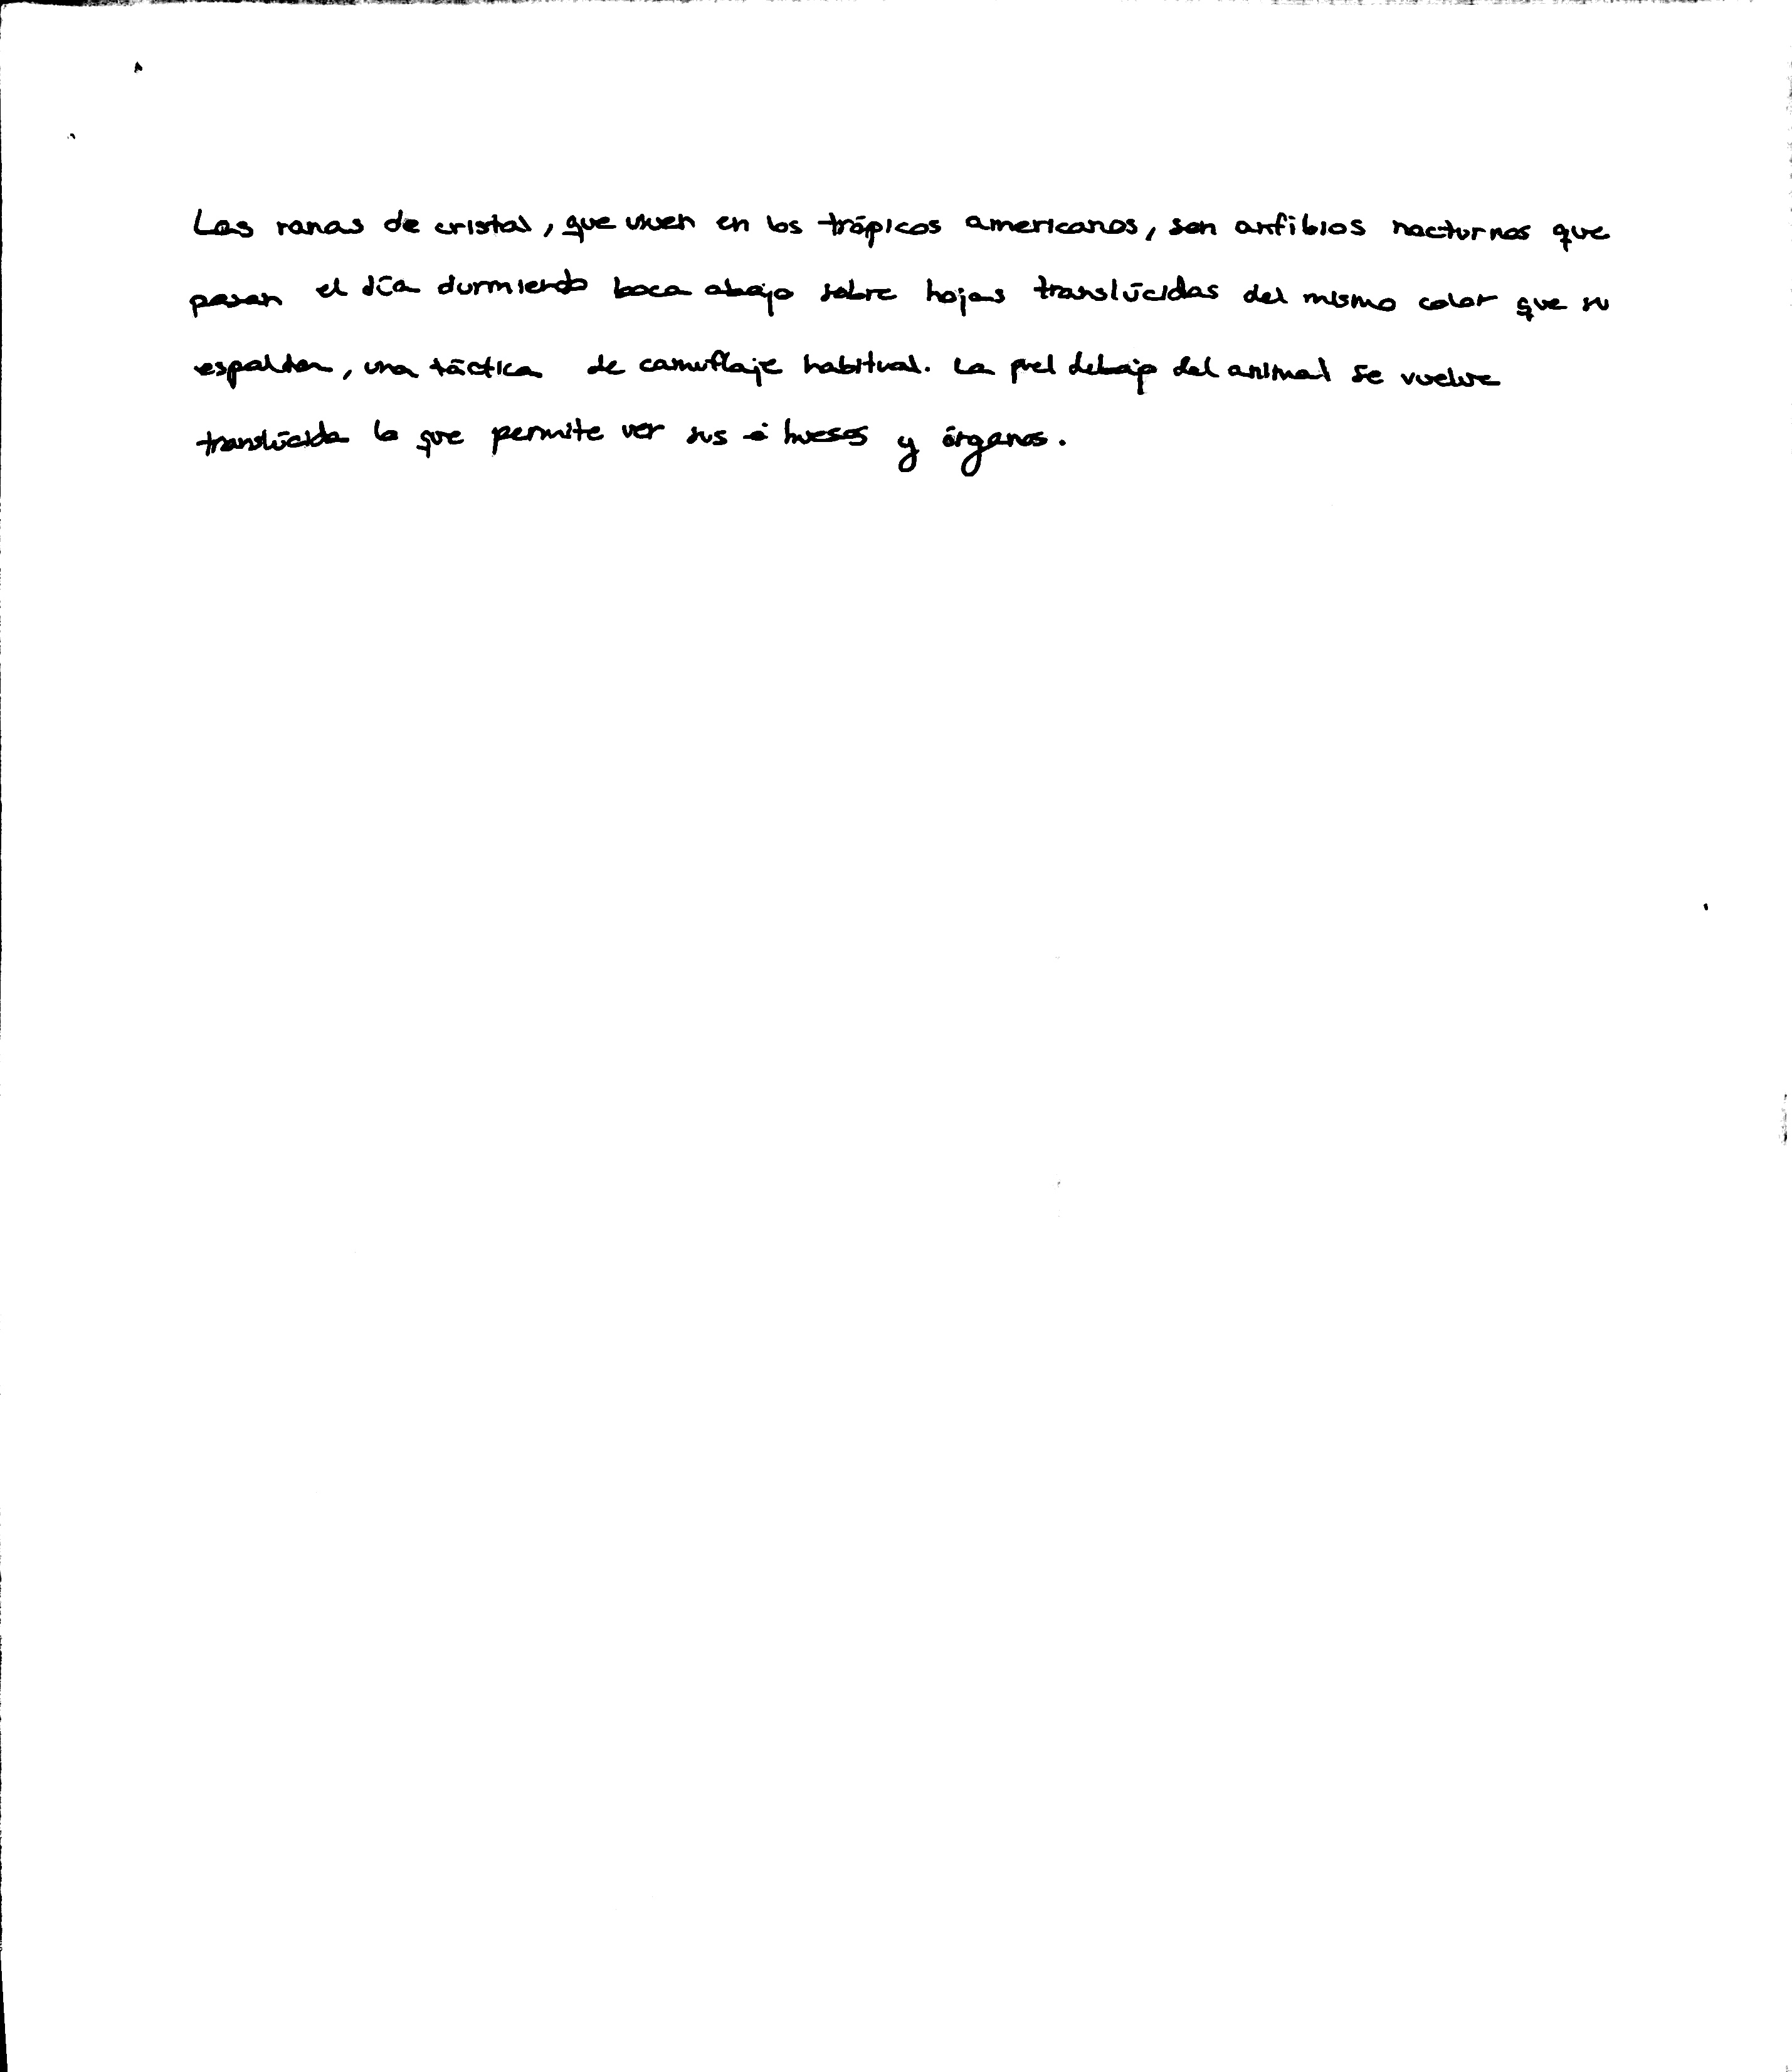 Las ranas de cristal, que viven en los trópicos americanos, son anfibios nocturnos que
pasan el día durmiendo boca abajo sobre hojas translúcidas del mismo color que su
espalda, una táctica de camuflaje habitual. La piel debajo del animal se vuelve
translúcida lo que permite ver sus huesos y órganos.